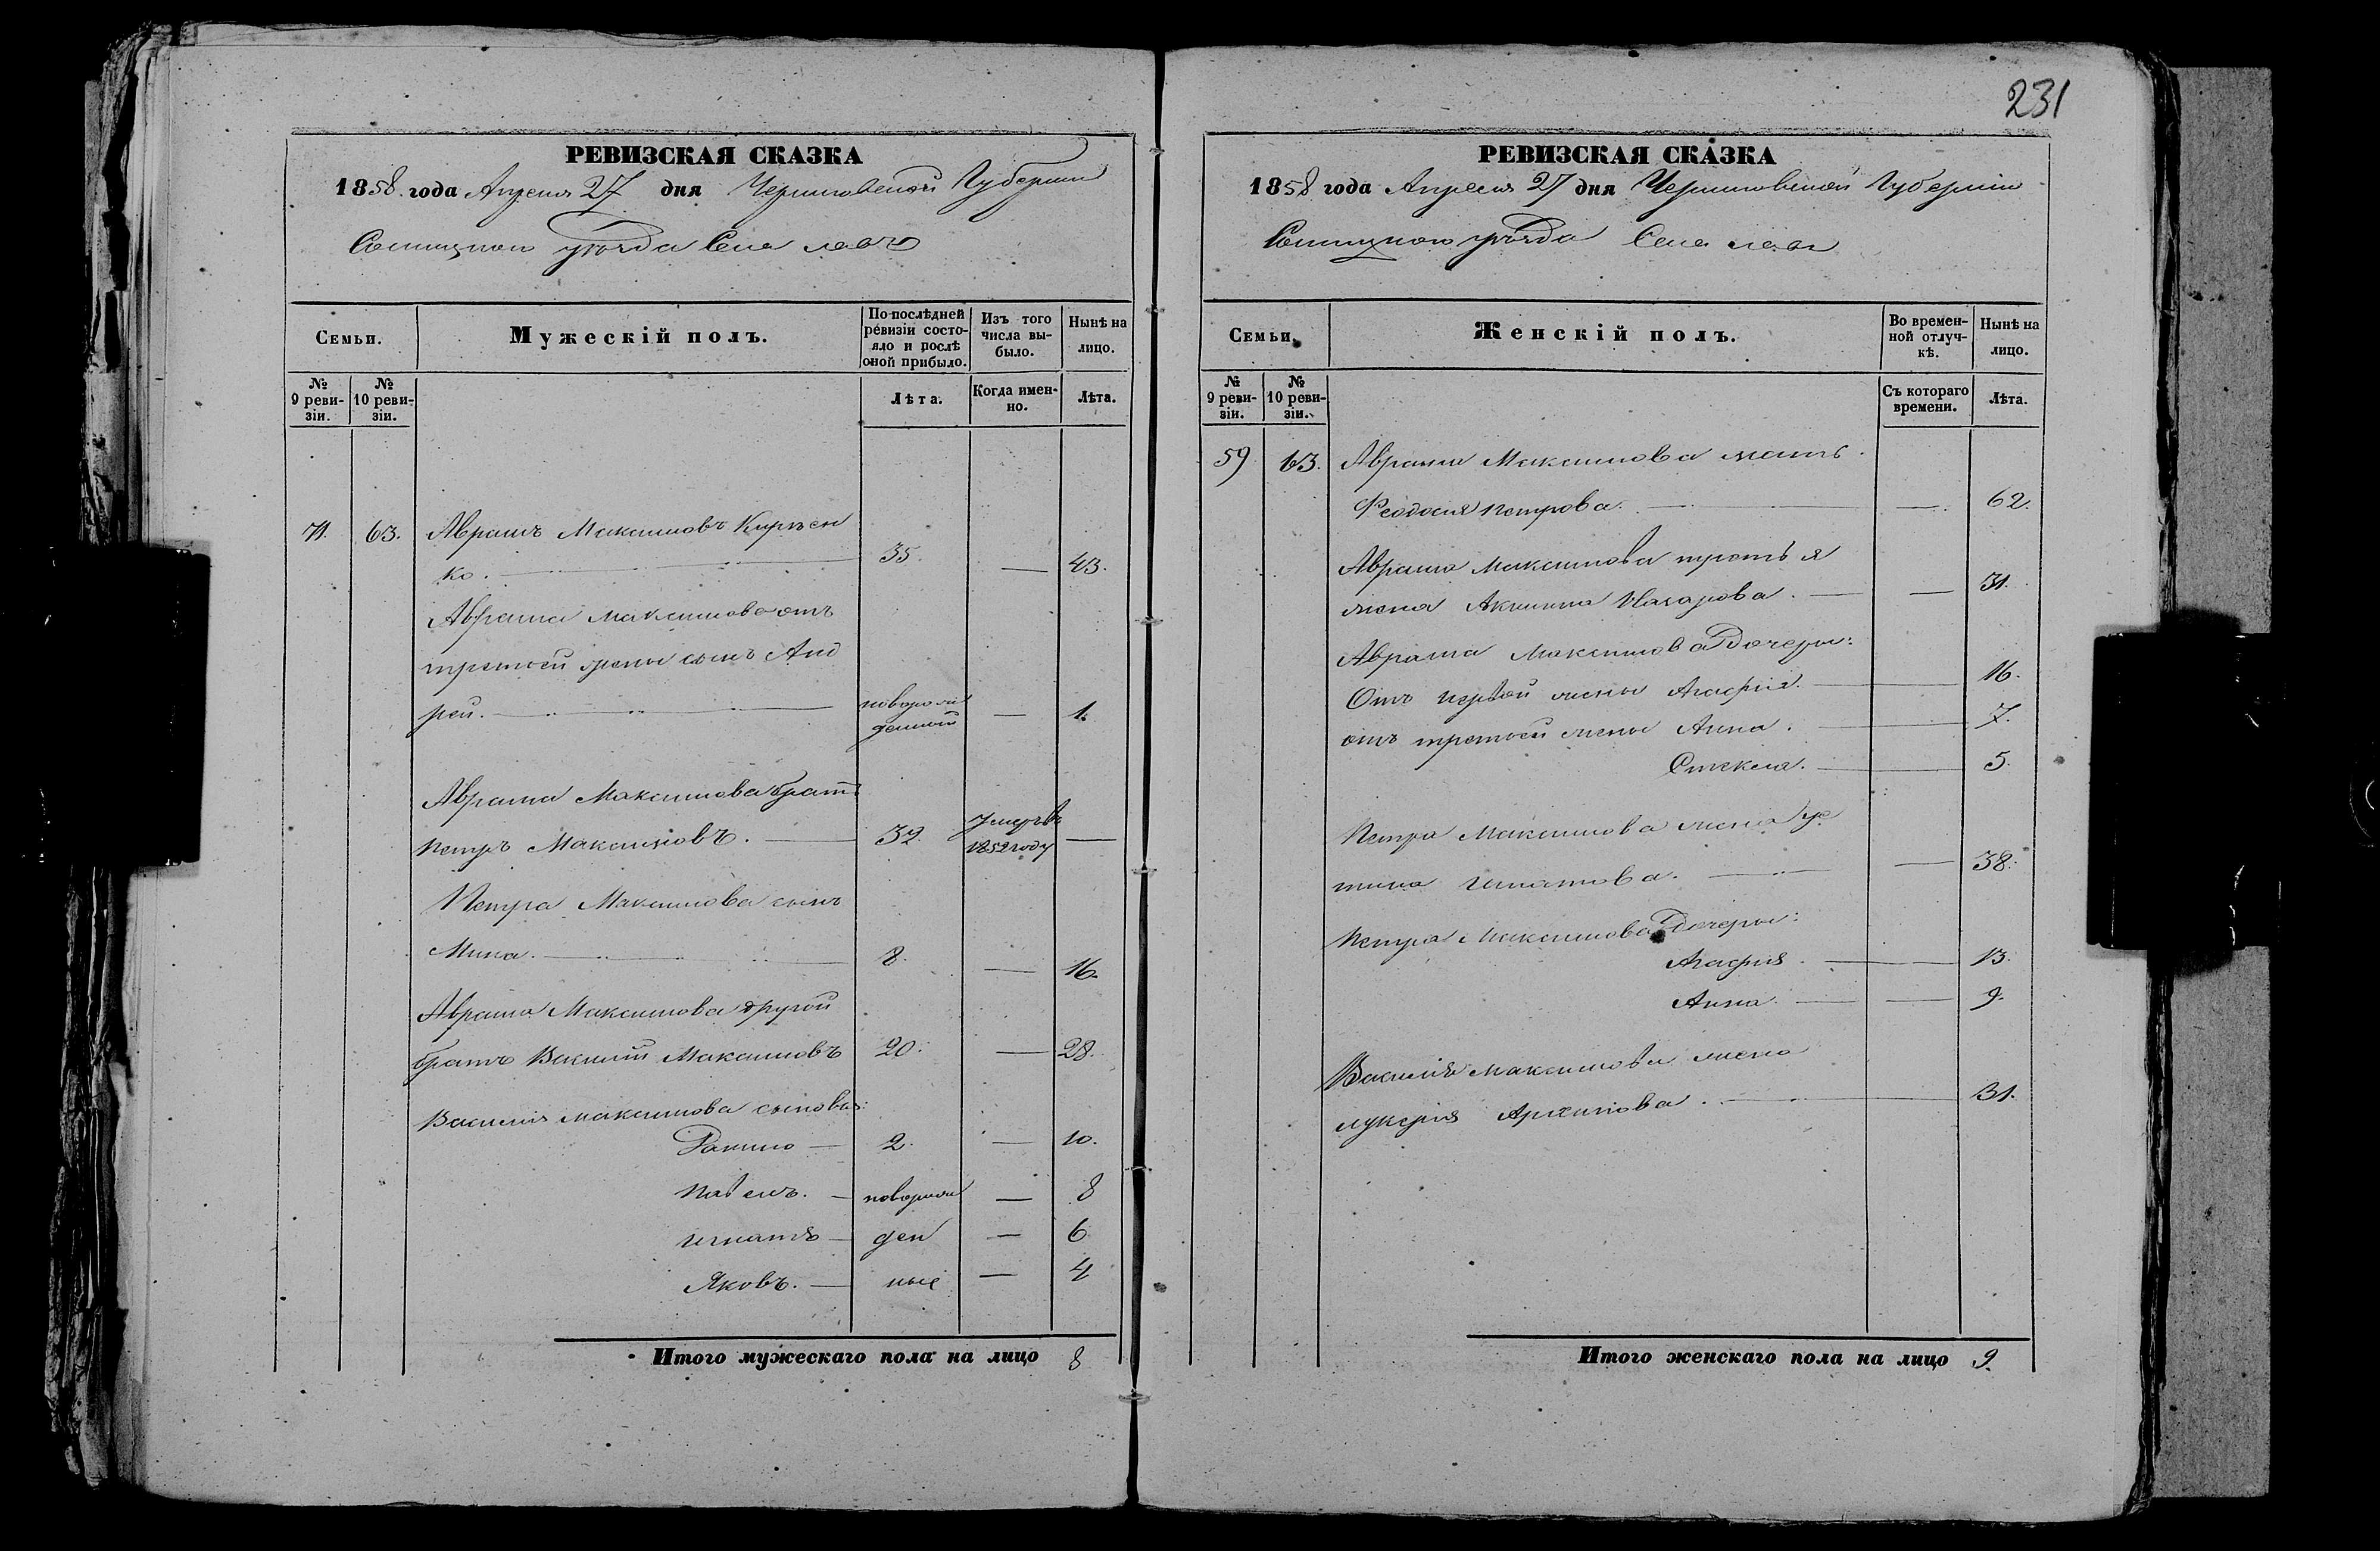 231
РЕВИЗСКАЯ СКАЗКА
1858 года Апреля 27 дня Черниговской Губернии
Сосницкого уѣзда Села Лавъ
Семьи.
Мужескій полъ.
По послѣдней ревизіи состояло и послѣ оной прибыло.
Изъ того числа выбыло.
Нынѣ на лицо.
№ 9 ревизіи.
№ 10 ревизіи.
Лѣта.
Когда именно.
Лѣта.
71. 63. Аврамъ Максимовъ Кириен
ко. 35. — 43.
Аврама Максимова отъ
третьей жены сынъ Анд
рей. новорож денный — 1.
Аврама Максимова братъ
Петръ Максимовъ. 32. Умеръ въ 1852 году —
Петра Максимова сынъ
Мина. 8. — 16.
Аврама Максимова другой
братъ Василий Максимовъ 20. — 28.
Василия Максимова сыновья:
Данило — 2. — 10.
Павелъ. — новорож — 8
Игнатъ — ден — 6
Яковъ. — ные — 4
Итого мужескаго пола на лицо 8
РЕВИЗСКАЯ СКАЗКА
1858 года Апреля 27 дня Черниговской Губерніи
Сосницкого уѣзда Села Лавъ
Семьи.
Женскій полъ.
Во временной отлучкѣ.
Нынѣ на лицо.
№ 9 ревизіи.
№ 10 ревизіи.
Съ котораго времени.
Лѣта.
59 63. Аврама Максимова мать
Феодосия Петрова. — 62.
Аврама Максимова третья
жена Акилина Назарова. — 31.
Аврама Максимова Дочери:
Отъ первой жены Агафия. 16.
отъ третьей жены Анна. 7.
Фекла. 5.
Петра Максимова жена Ус
тина Игнатова. — 38.
Петра Максимова Дочери:
Агафия. — 13.
Анна. — 9.
Василия Максимова жена
Лукерия Архипова. 31.
Итого женскаго пола на лицо 9.